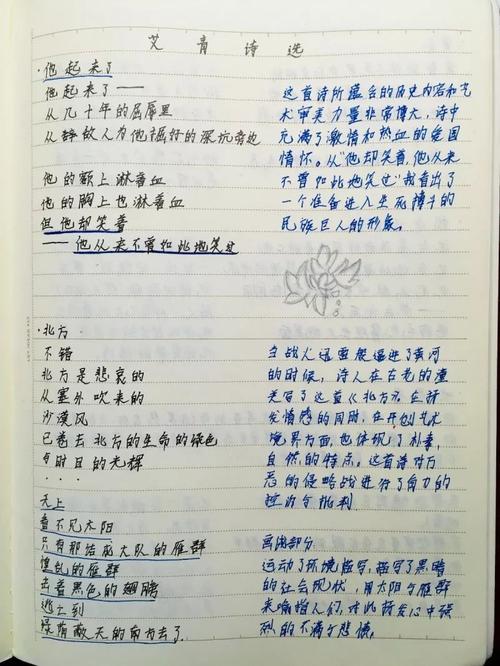 艾青诗选
·他起来了
他起来了——
从几十年的屈辱里
从敌人为他掘好的深坑旁边
他的额上淋着血
他的胸上也淋着血
但他却笑着
——他从来不曾如此地笑过
这首诗所蕴含的历史内容和艺
术审美力量非常博大，诗中
充满了激情和热血的爱国
情怀。从“他却笑着，他从来
不曾如此地笑过”我看出了
一个准备进入生死搏斗的
民族巨人的形象。
·北方
不错
北方是悲哀的
从塞外吹来的
沙漠风
已卷去北方的生命的绿色
与时日的光辉
···
天上
看不见太阳
只有那结成大队的雁群
惶乱的雁群
击着黑色的翅膀
逃亡到
绿荫蔽天的南方去了
当战火迅雷般逼进了黄河
的时候，诗人在古老的潼
关写了这首《北方》，在抒
发情感的同时，在开创艺术
境界方面，也体现了朴素，
自然的特点。这首诗对万
恶的侵略战进行了有力的
控诉与批判
画线部分
运动了环境描写，描写了黑暗
的社会现状，用太阳与雁群
来喻指人们，对此抒发心中强
烈的不满与悲愤。